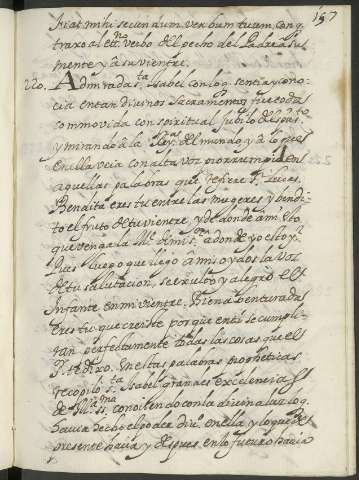 157
Fiat mihi secundum verbum tuum, con q
traxo al etno. verbo del pecho del Padre a su
mente y a su vientre.
220. Admirada sta. Isabel con lo q sentia y cono-
cia en tan divinos Sacramentos fue toda
commovida con spiritual jubilo del spu sto
y mirando a la Reyna del mundo, y a lo que
en ella veia con alta voz prorrumpio en
aquellas palabras que refiere s. Lucas.
Bendita eres tu entre las mugeres y bendi-
to el fruto de tu vientre, y de donde a mi esto
que venga la Me. de mi sor. a donde yo estoy?
Pues luego que llego a mis oydos la voz
de tu salutacion, se exulto y alegro el
Infante en mi vientre. Bienabenturada
eres tu que creiste porque en ti se cumpli-
ran perfectamente todas las cosas que el
Sr. te dixo. En estas palabras propheticas
recopilo sta. Isabel grandes excelencias
de Ma. ssma. conociendo con la divina luz lo q
havia hecho el poder divo. en ella y lo que de
presente hacia y despues en lo futuro havia